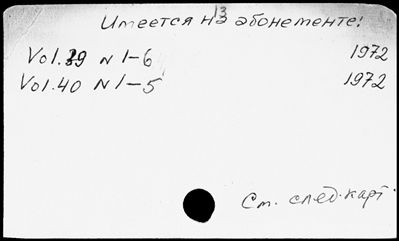 13
Имеется на абонементе!
Vol.39 N 1-6 1972
Vol.40 N 1-5 1972
См. след. карт.